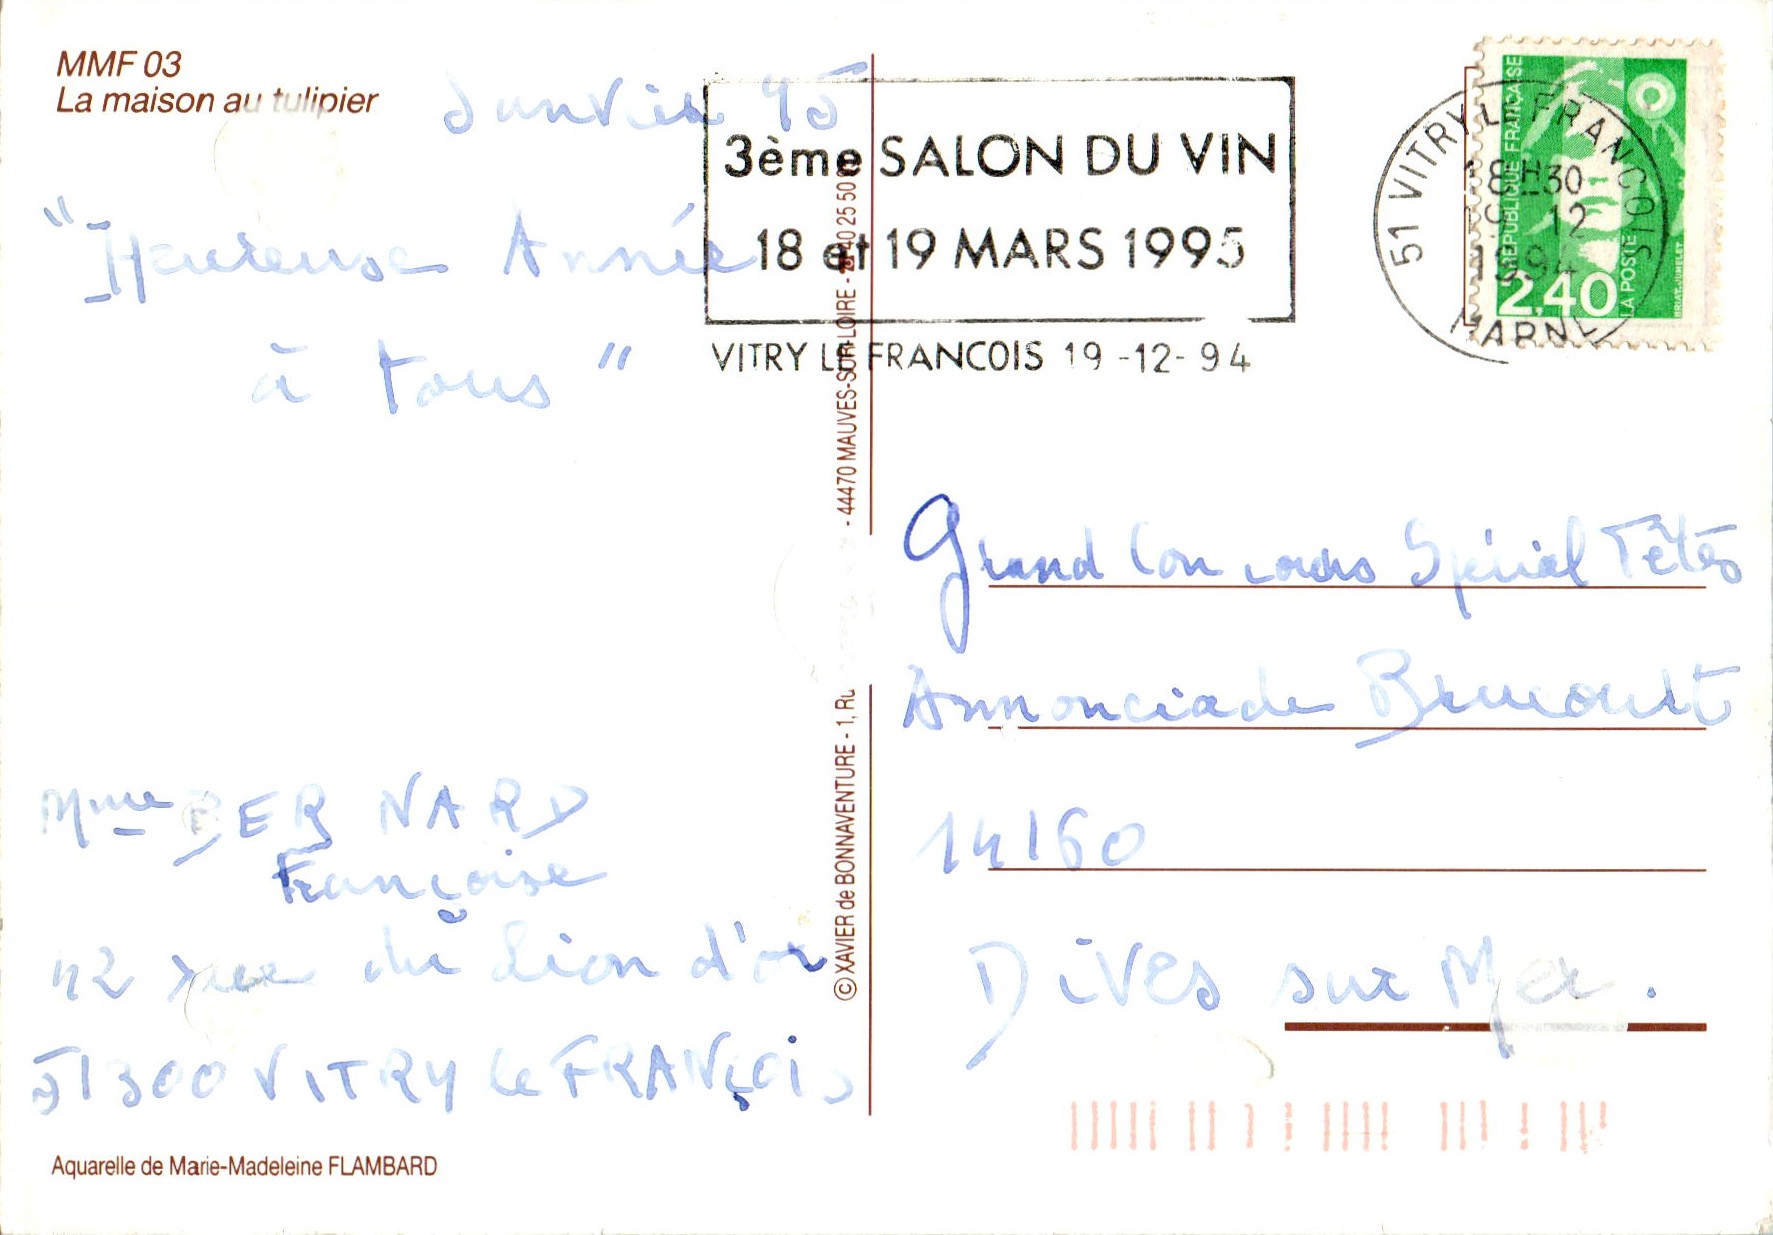 MMF 03
La maison au tulipier
Janvier 95
"Heureuse Année
à tous"
Mme BERNARD
Françoise
42 rue du Lion d'or
51300 VITRY le FRANÇOIS
Aquarelle de Marie-Madeleine FLAMBARD
© XAVIER de BONNAVENTURE - 1, Ru
- 44470 MAUVES-SUR-LOIRE - 40 25 50
3ème SALON DU VIN
18 et 19 MARS 1995
VITRY LE FRANCOIS 19-12-94
51 VITRY LE FRANCOIS
18H30
19 12
1994
MARNE
REPUBLIQUE FRANÇAISE
2,40
LA POSTE
Grand Concours Spécial Fêtes
Annonciade
14160
Dives sur Mer.